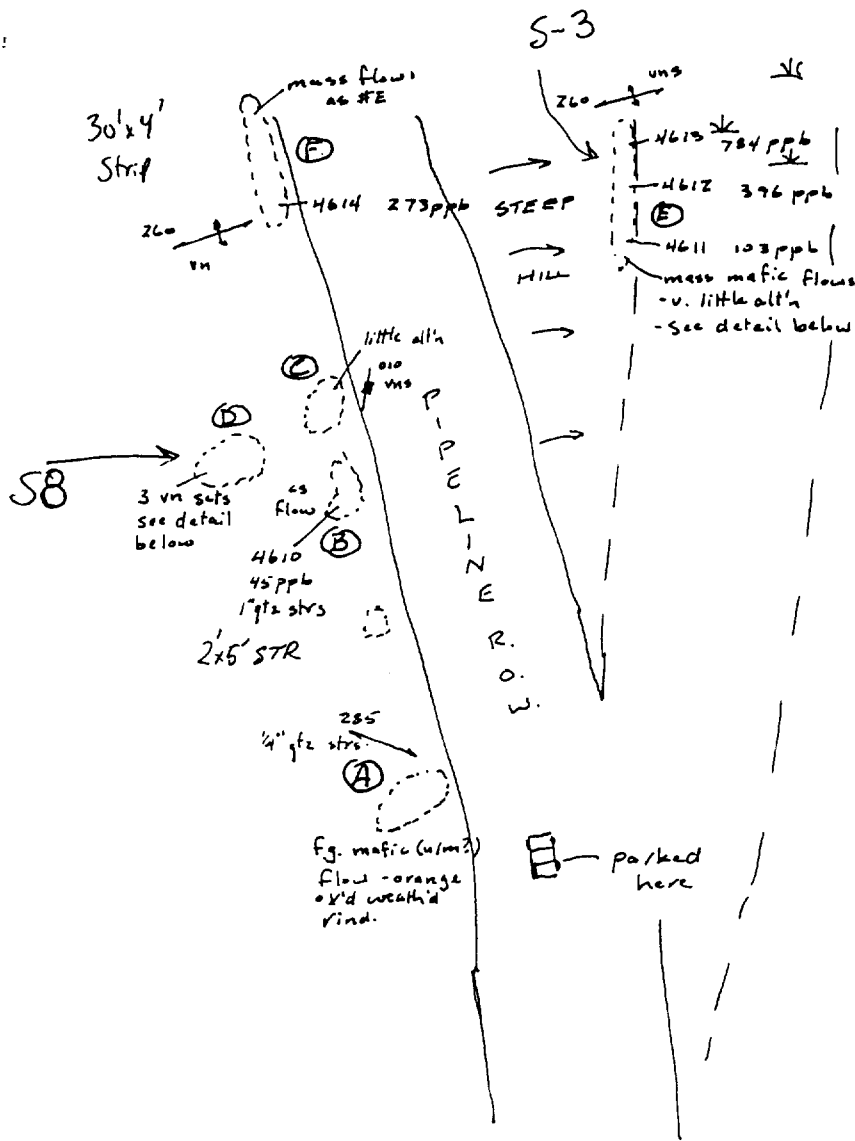 S-3
mass flows
as #E
30'x4'
Strip
F
4614 273ppb
260
vn
STEEP
HILL
260
vns
4613 784 ppb
4612 396 ppb
E
4611 103 ppb
mass mafic flows
-v. little alt'n
-see detail below
little alt'n
010
vns
C
D
S8
3 vn sets
see detail
below
flow
B
4610
45ppb
1" qtz strs
2'x5' STR
PIPELINE R.O.W.
285
1/4" qtz strs.
A
f.g. mafic (u/m?)
flow - orange
ox'd weath'd
rind.
parked
here